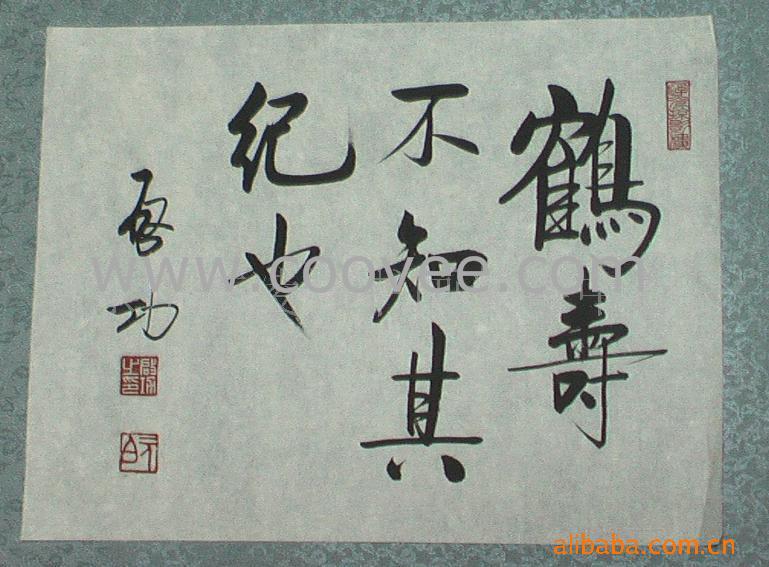 鶴壽
不知其
紀也
啓功
啟功之印
www.cooyee.com
alibaba.com.cn